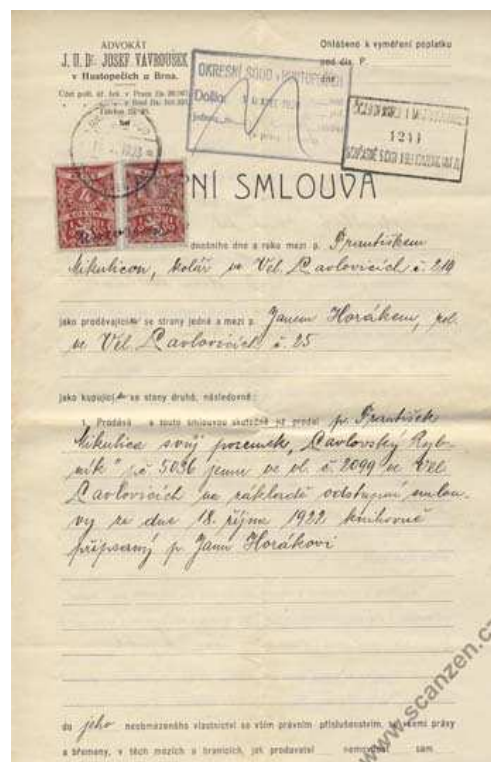 ADVOKÁT
J. U. Dr. JOSEF VAVROUŠEK
v Hustopečích u Brna.
Ohlášeno k vyměření poplatku
pod čís. P.
dne
OKRESNÍ SOUD v HUSTOPEČÍCH
Došlo
1241
PNÍ SMLOUVA
dnešního dne a roku mezi p. Františkem
Mikulicou, kolář ve Vel. Pavlovicích č. 210
jako prodávající se strany jedné a mezi p. Janem Horákem, rol.
ve Vel. Pavlovicích č. 25
jako kupující se strany druhé, následovně:
1. Prodává a touto smlouvou skutečně již prodal p. František
Mikulica svůj pozemek „Pavlovský Ryb-
ník" p.č 5036 jemu ve vl. č. 2099 ve Vel.
Pavlovicích na základě odstupní smlou-
vy ze dne 18. října 1922 knihovně
připsaný p. Janu Horákovi
do jeho neobmezeného vlastnictví se vším právním příslušenstvím, se všemi právy
a břemeny, v těch mezích a hranicích, jak prodavatel nemovitost sám
www.scanzen.cz